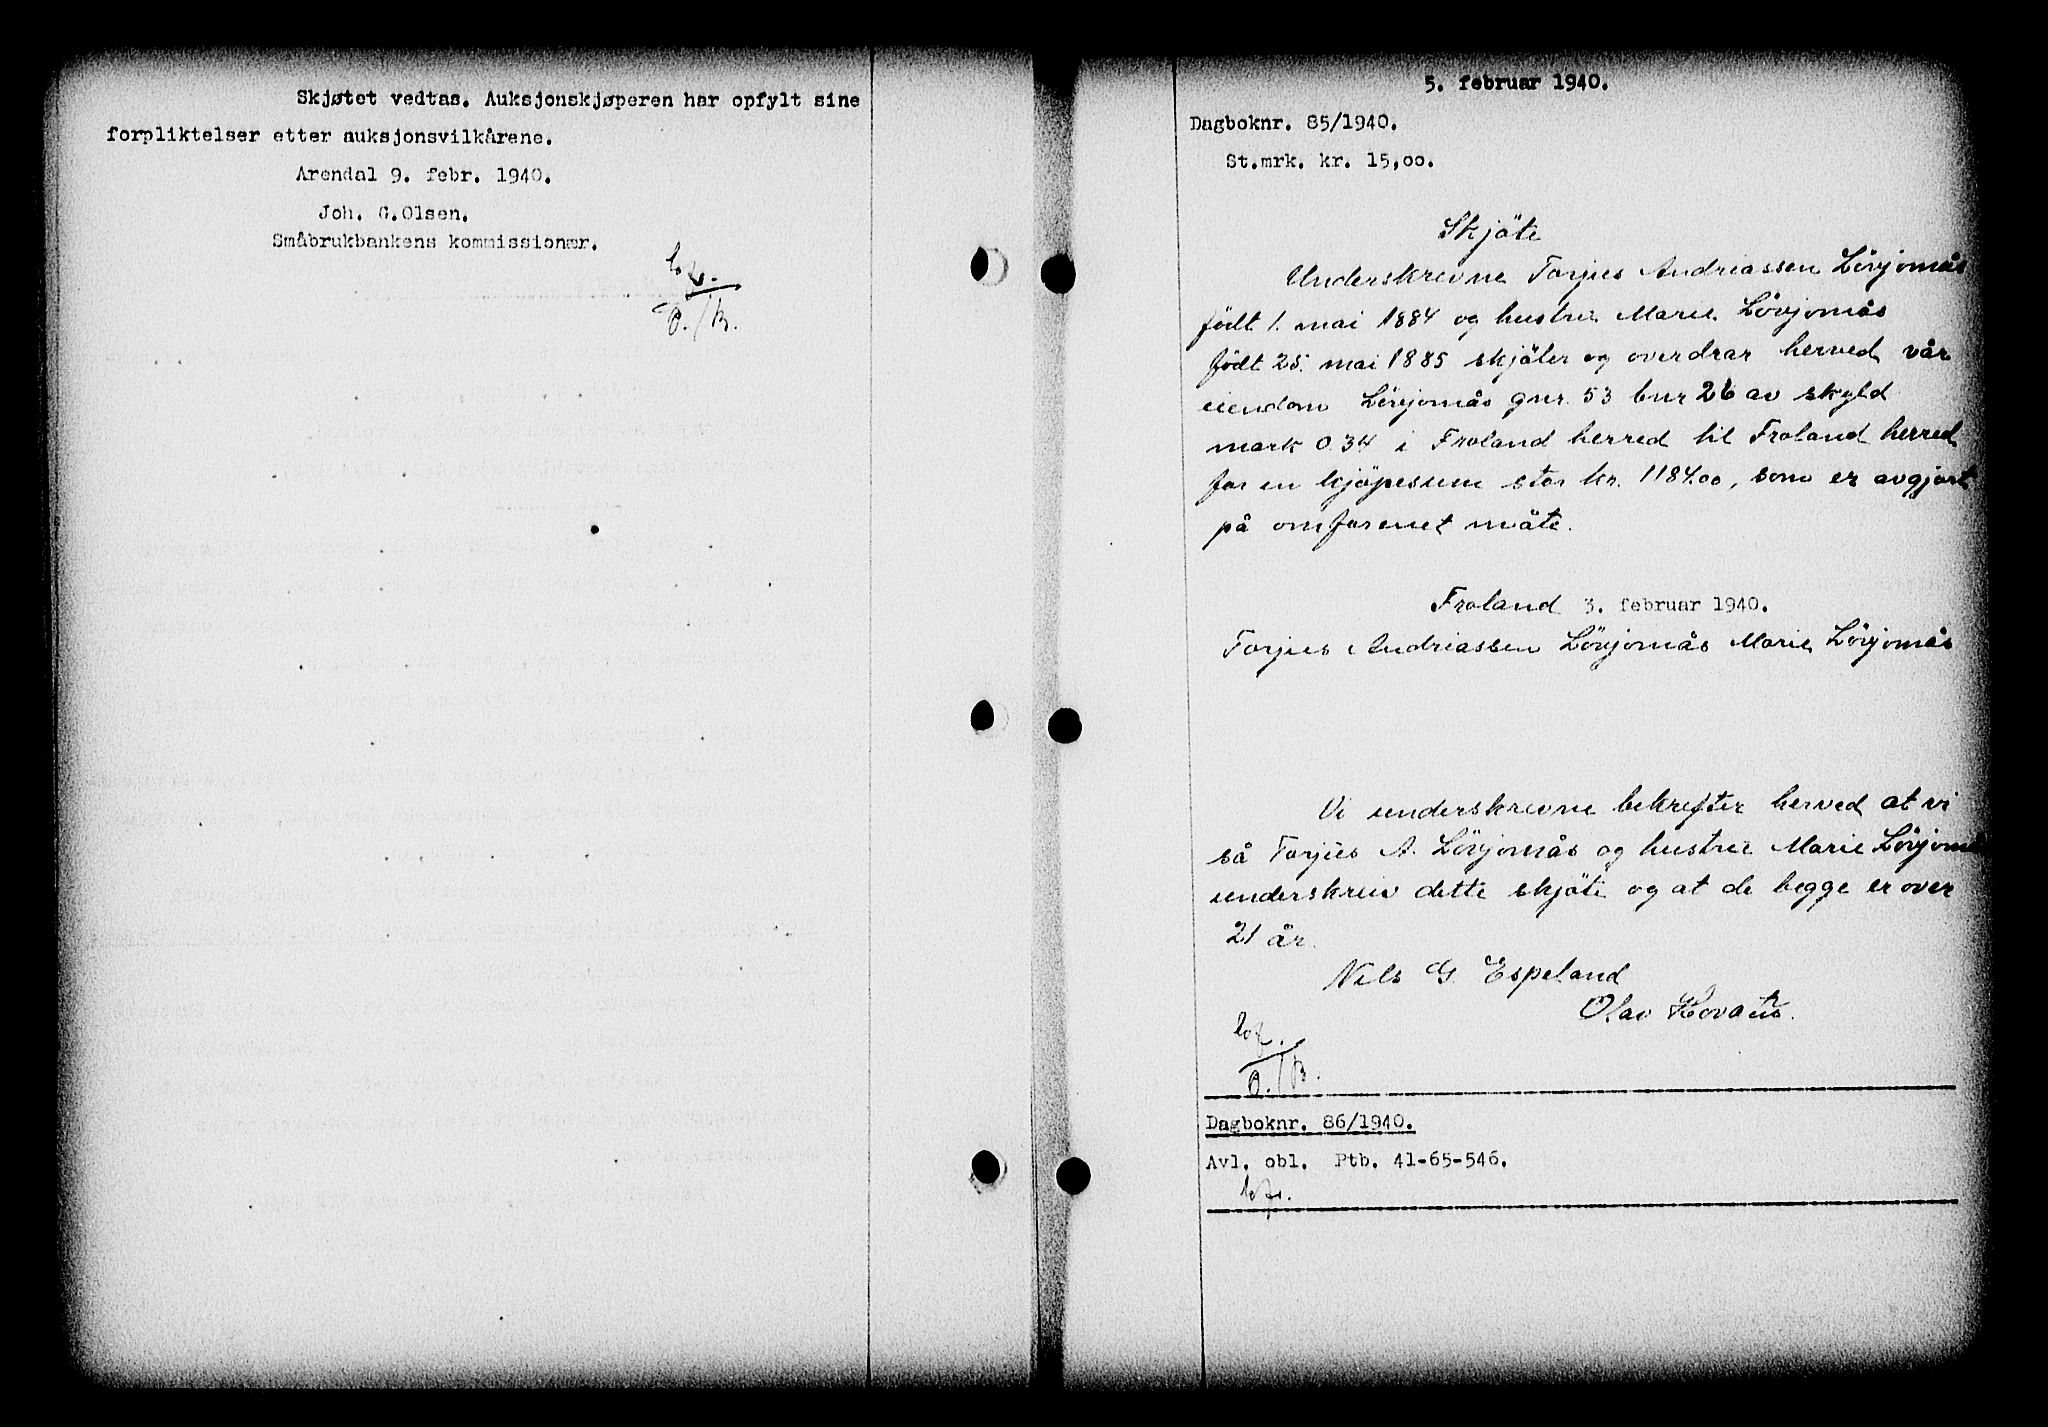 Skjøtet vedtas. Auksjonskjøperen har opfylt sine
forpliktelser etter auksjonsvilkårene.
Arendal 9. febr. 1940.
Joh. G.Olsen.
Småbrukbankens kommissionær.
5. februar 1940.
Dagboknr. 85/1940.
St.mrk. kr. 15,oo.
Skjöte
Underskrevne Torjus Andriassen Lövjomås
født 1. mai 1884 og hustru Marie Lövjomås
født 25. mai 1885 skjöter og overdrar herved vår
eiendom Lövjomås gnr. 53 bnr 26 av skyld
mark 0.34 i Froland herred til Froland herred
for en kjöpesum stor kr. 1184.oo, som er avgjort
på omforenet måte.
Froland 3. februar 1940.
Torjus Andriassen Lövjomås Marie Lövjomås
Vi underskrevne bekrefter herved at vi
så Torjus A. Lövjomås og hustru Marie
underskriv dette skjöte og at de begge er over
21 år.
Nils G. Espeland
Olav
Dagboknr. 86/1940.
Avl. obl. Ptb. 41-65-546.